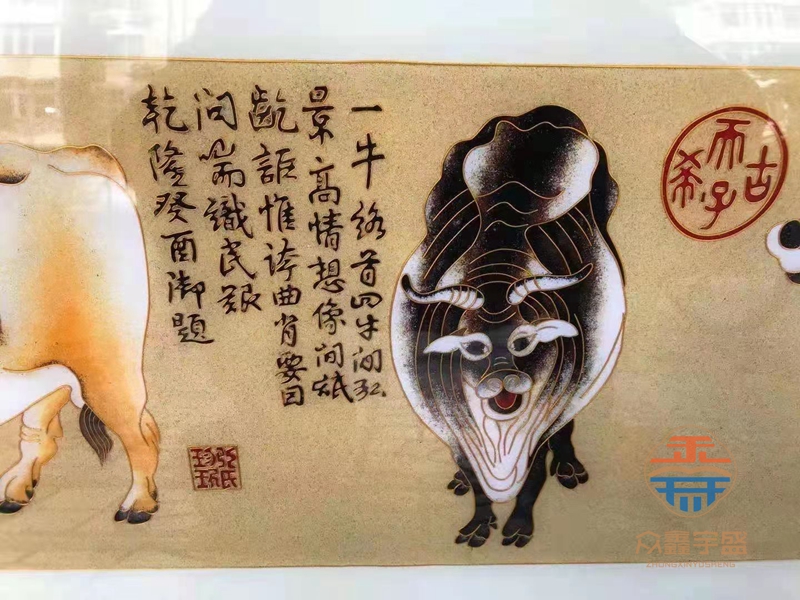 一牛络首四牛闲弘
景高情想像间舐
齕詎惟誇曲肖要因
问喘識民艱
乾隆癸酉御題
古希天子
众鑫宇盛
ZHONGXINYUSHENG